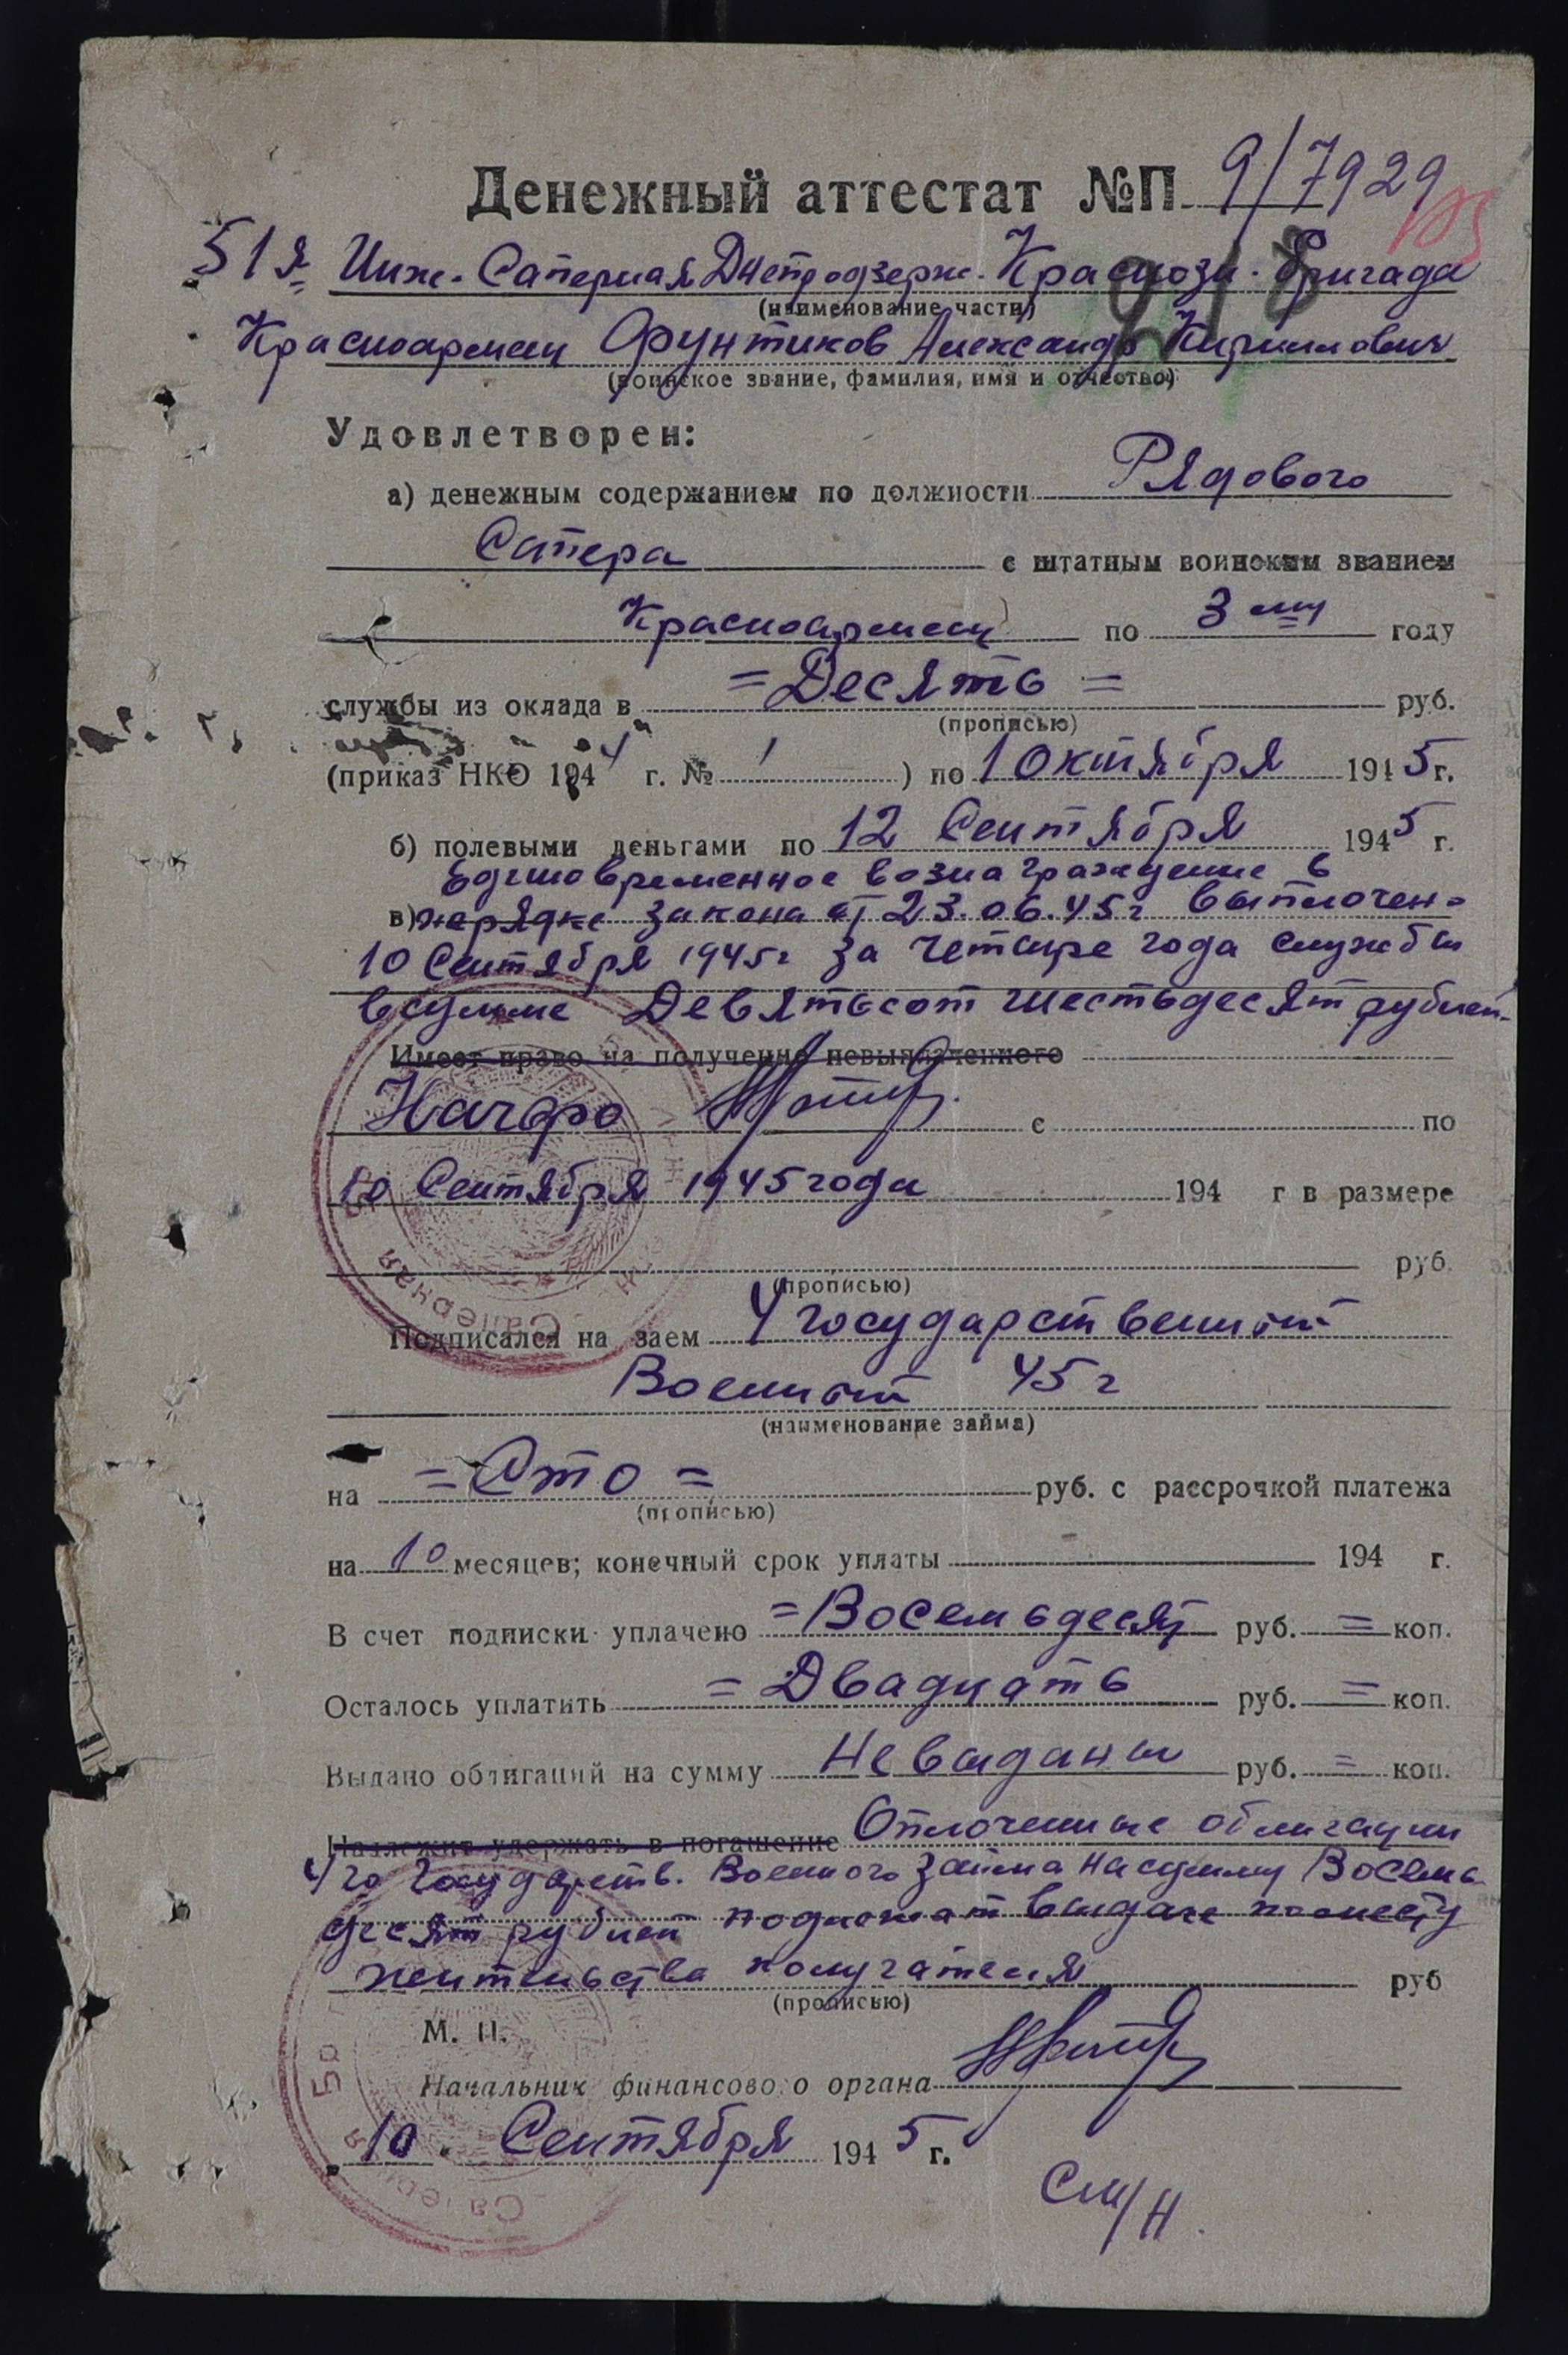 Денежный аттестат №П 9/7929
51я Инж. Саперная Днепродзерж. Краснозн. бригада
(наименование части)
Красноармеец Фунтиков Александр Кириллович
(воинское звание, фамилия, имя и отчество)
Удовлетворен:
а) денежным содержанием по должности Рядового
Сапера с штатным воинским званием
Красноармеец по 3 му году
службы из оклада в =Десять= руб.
(прописью)
(приказ НКО 1944 г. № 1) по 1 октября 1945 г.
б) полевыми деньгами по 12 Сентября 1945 г.
Единовременное вознаграждение в
в) порядке закона от 23.06.45г выплочен-
10 Сентября 1945г за четыре года службы
в сумме Девятьсот шестьдесят рублей-
Имеет право на получение невыплаченного
Начфо с по
10 Сентября 1945 года 194 г в размере
руб.
(прописью)
Подписался на заем 4 государственный
Военный 45 г
(наименование займа)
на =Сто= руб. с рассрочкой платежа
(прописью)
на 10 месяцев; конечный срок уплаты 194 г.
В счет подписки уплачено =Восемьдесят руб. = коп.
Осталось уплатить =Двадцать руб. = коп.
Выдано облигаций на сумму Не выданы руб. = коп.
Надлежит удержать в погашение Оплоченные облигации
4го Государств. Военного займа на сумму Восемь
десят рублей подлежат выдаче по месту
жительства получателя руб
(прописью)
М. П.
Начальник финансового органа
10 Сентября 1945 г.
См/Н.